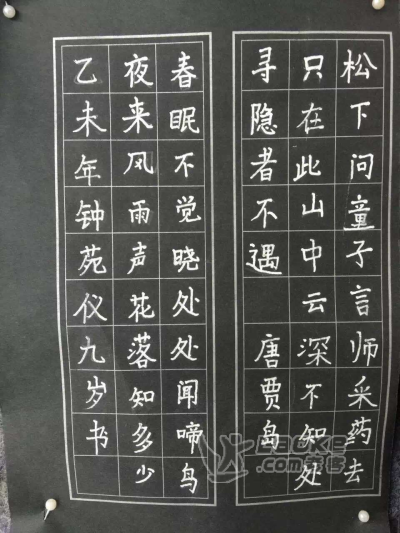 松下问童子言师采药去
只在此山中云深不知处
寻隐者不遇 唐贾岛
春眠不觉晓处处闻啼鸟
夜来风雨声花落知多少
乙未年钟苑仪九岁书
.com